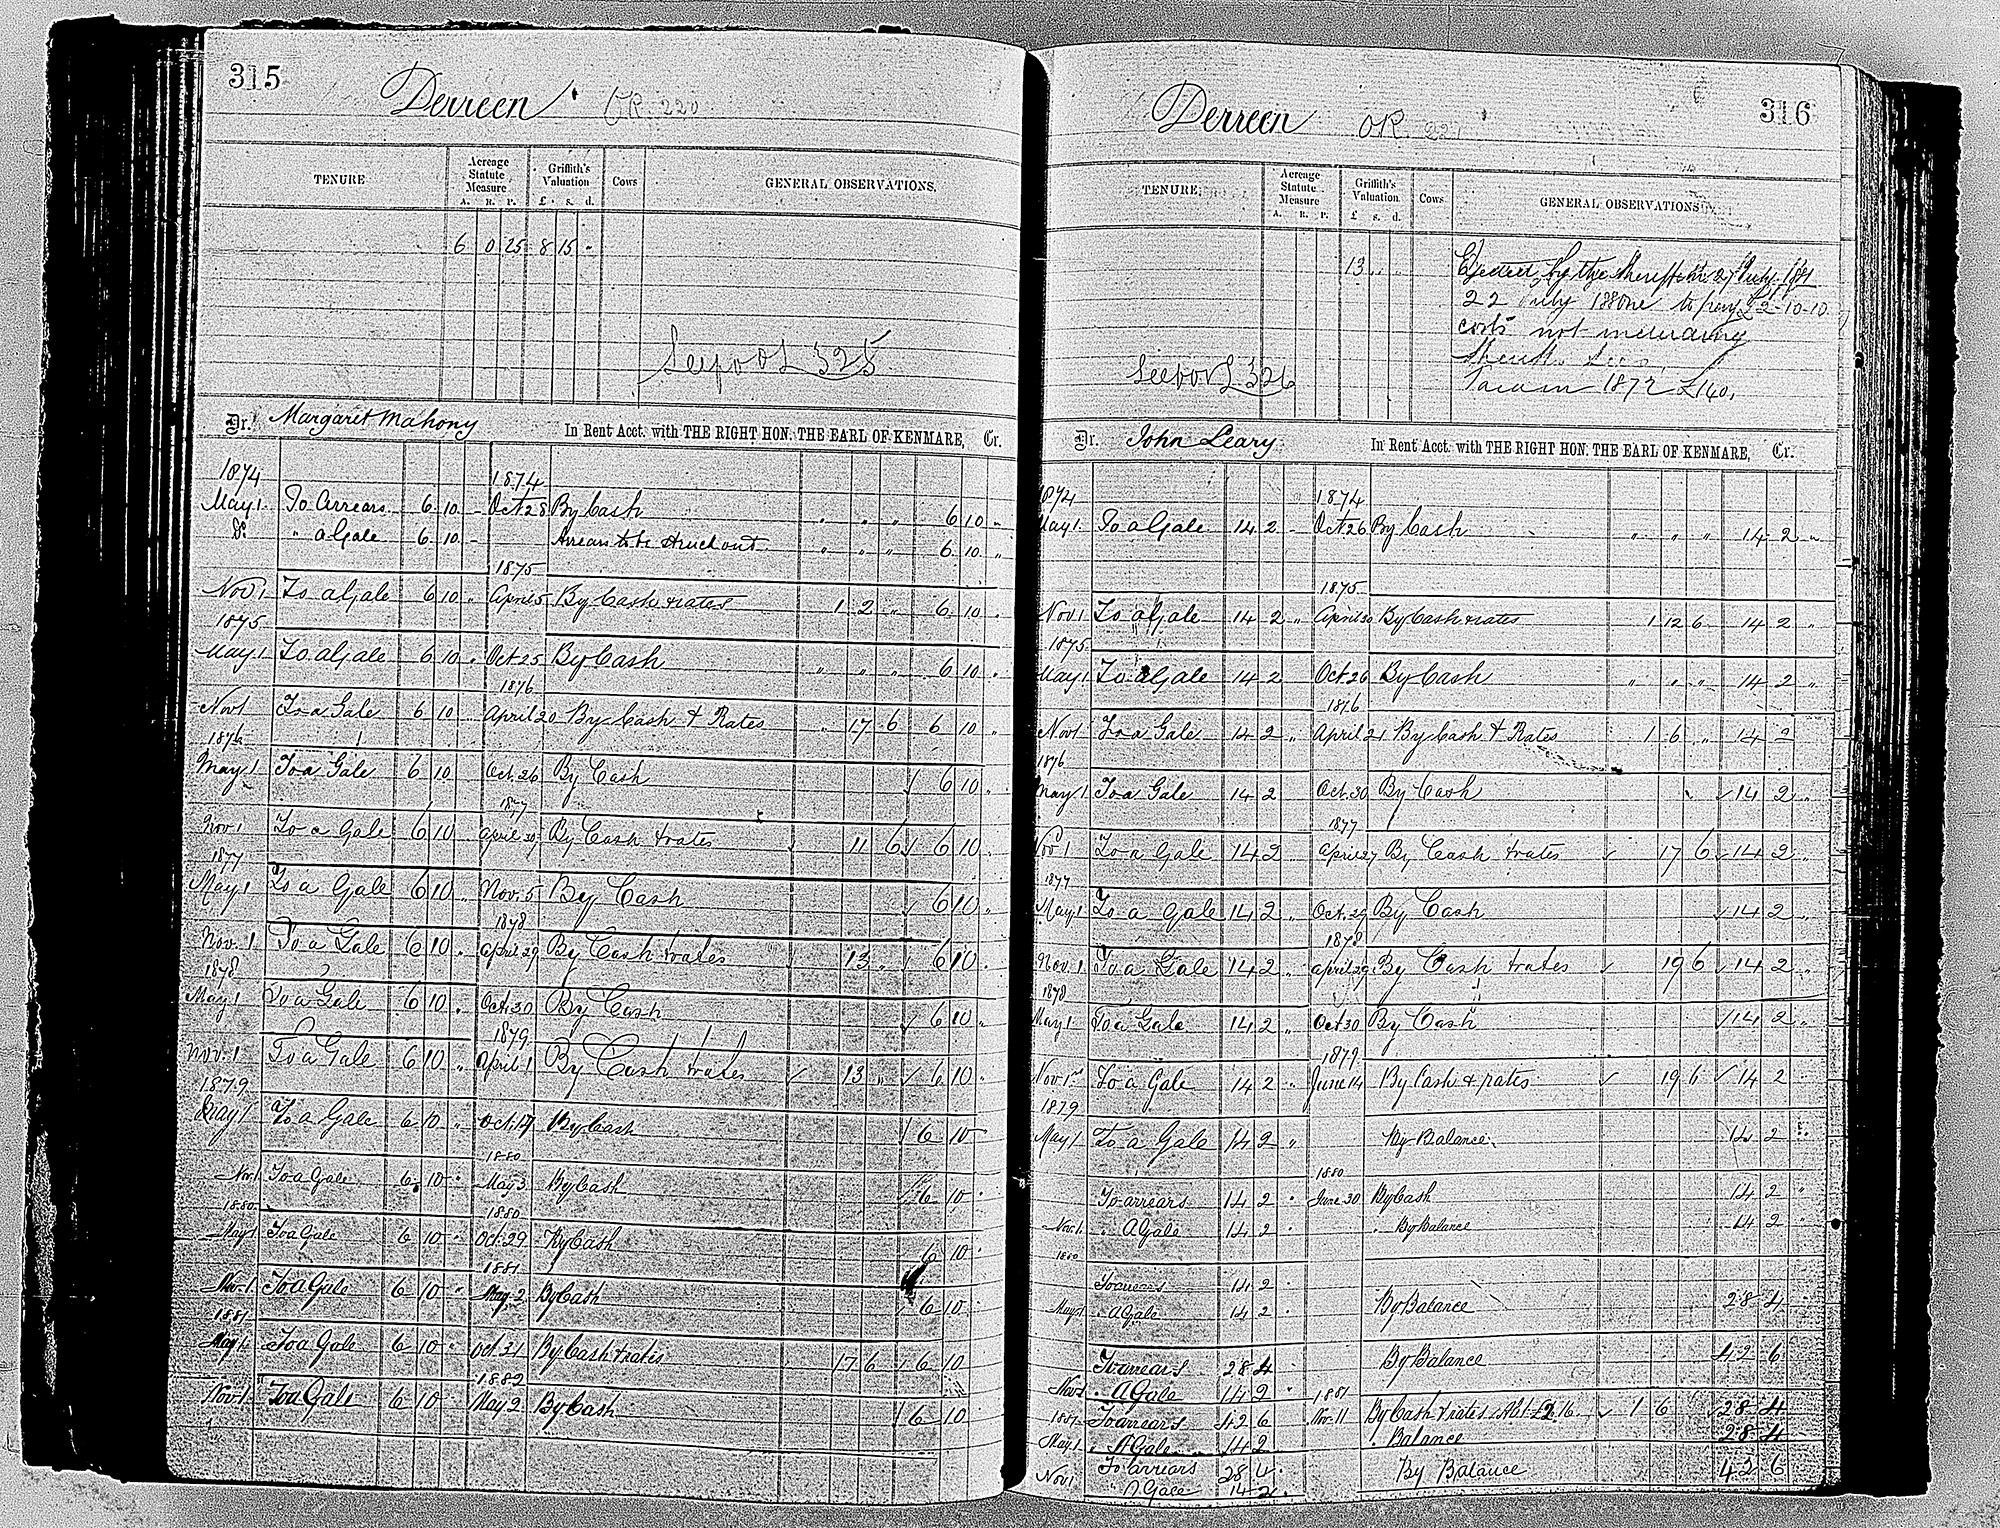 315
Derreen OR. 220
TENURE Acreage Statute Measure Griffith's Valuation Cows GENERAL OBSERVATIONS.
A. R. P. £ s. d.
6 0 25 8 15 "
See vol 325
Dr. Margaret Mahony In Rent Acct. with THE RIGHT HON. THE EARL OF KENMARE, Cr.
1874 1874
May 1 To Arrears 6 10 - Oct 28 By Cash " " " 6 10 "
Do " a Gale 6 10 - Arrears to be struck out " " " 6 10 "
1875
Nov 1 To a Gale 6 10 " April 5 By Cash & rates 1 2 " 6 10 "
1875
May 1 To a Gale 6 10 " Oct 25 By Cash " " " 6 10 "
1876
Nov 1 To a Gale 6 10 " April 20 By Cash & Rates " 17 6 6 10 "
1876
May 1 To a Gale 6 10 Oct. 26 By Cash 6 10 "
1877
Nov 1 To a Gale 6 10 April By Cash & rates 11 6 6 10 "
1877
May 1 To a Gale 6 10 " Nov. 5 By Cash 6 10 "
1878
Nov. 1 To a Gale 6 10 " April 29 By Cash & rates 13 " 6 10 "
1878
May 1 To a Gale 6 10 " Oct. 30 By Cash 6 10 "
1879
Nov. 1 To a Gale 6 10 " April 1 By Cash & rates 13 " 6 10 "
1879
May 1 To a Gale 6 10 " Oct. By Cash 6 10 "
1880
Nov 1 To a Gale 6 10 " May 3 By Cash 6 10 "
1880 1880
May 1 To a Gale 6 10 " Oct. 29 By Cash 6 10 "
1881
Nov. 1 To a Gale 6 10 " May 2 By Cash 6 10
1881
May 1 To a Gale 6 10 " Oct 31 By Cash & rates 17 6 6 10
1882
Nov 1 To a Gale 6 10 " May 2 By Cash 6 10
316
Derreen OR. 221
TENURE. Acreage Statute Measure Griffith's Valuation Cows GENERAL OBSERVATIONS
A. R. P. £ s. d.
13 " " Ejected by the Sheriff 27 July 1881
22 July 188 to pay £2-10-10
costs not including
Sheriff's fees
1872 £140.
See vol 326
Dr. John Leary In Rent Acct. with THE RIGHT HON. THE EARL OF KENMARE, Cr.
1874 1874
May 1. To a Gale 14 2 - Oct 26 By Cash " " " 14 2 "
1875
Nov 1 To a Gale 14 2 " April 30 By Cash & rates 1 12 6 14 2 "
1875
May 1 To a Gale 14 2 Oct 26 By Cash " " " 14 2 "
1876
Nov 1 To a Gale 14 2 " April 21 By Cash & Rates 1 6 " 14 2
1876
May 1 To a Gale 14 2 Oct. 30 By Cash 14 2 "
1877
Nov 1 To a Gale 14 2 April 27 By Cash & rates 17 6 14 2 "
1877
May 1 To a Gale 14 2 " Oct. 29 By Cash 14 2 "
1878
Nov. 1 To a Gale 14 2 " April 29 By Cash & rates 19 6 14 2 "
1878
May 1 To a Gale 14 2 " Oct 30 By Cash 14 2 "
1879
Nov 1st To a Gale 14 2 " June 14 By Cash & rates 19 6 14 2
1879
May 1 To a Gale 14 2 " By Balance 14 2
1880
To arrears 14 2 " June 30 By Cash 14 2 "
Nov. 1 " A Gale 14 2 " " By Balance 14 2
1880
To arrears 14 2 "
May 1 " A Gale 14 2 " By Balance 28 4
To arrears 28 4 By Balance 42 6
Nov 1 " A Gale 14 2 " 1881
1881 To arrears 42 6 Nov. 11 By Cash & rates 1 6 28 4
May 1 " A Gale 14 2 " Balance 28 4
To arrears 28 4 By Balance 42 6
Nov 1 " A Gale 14 2